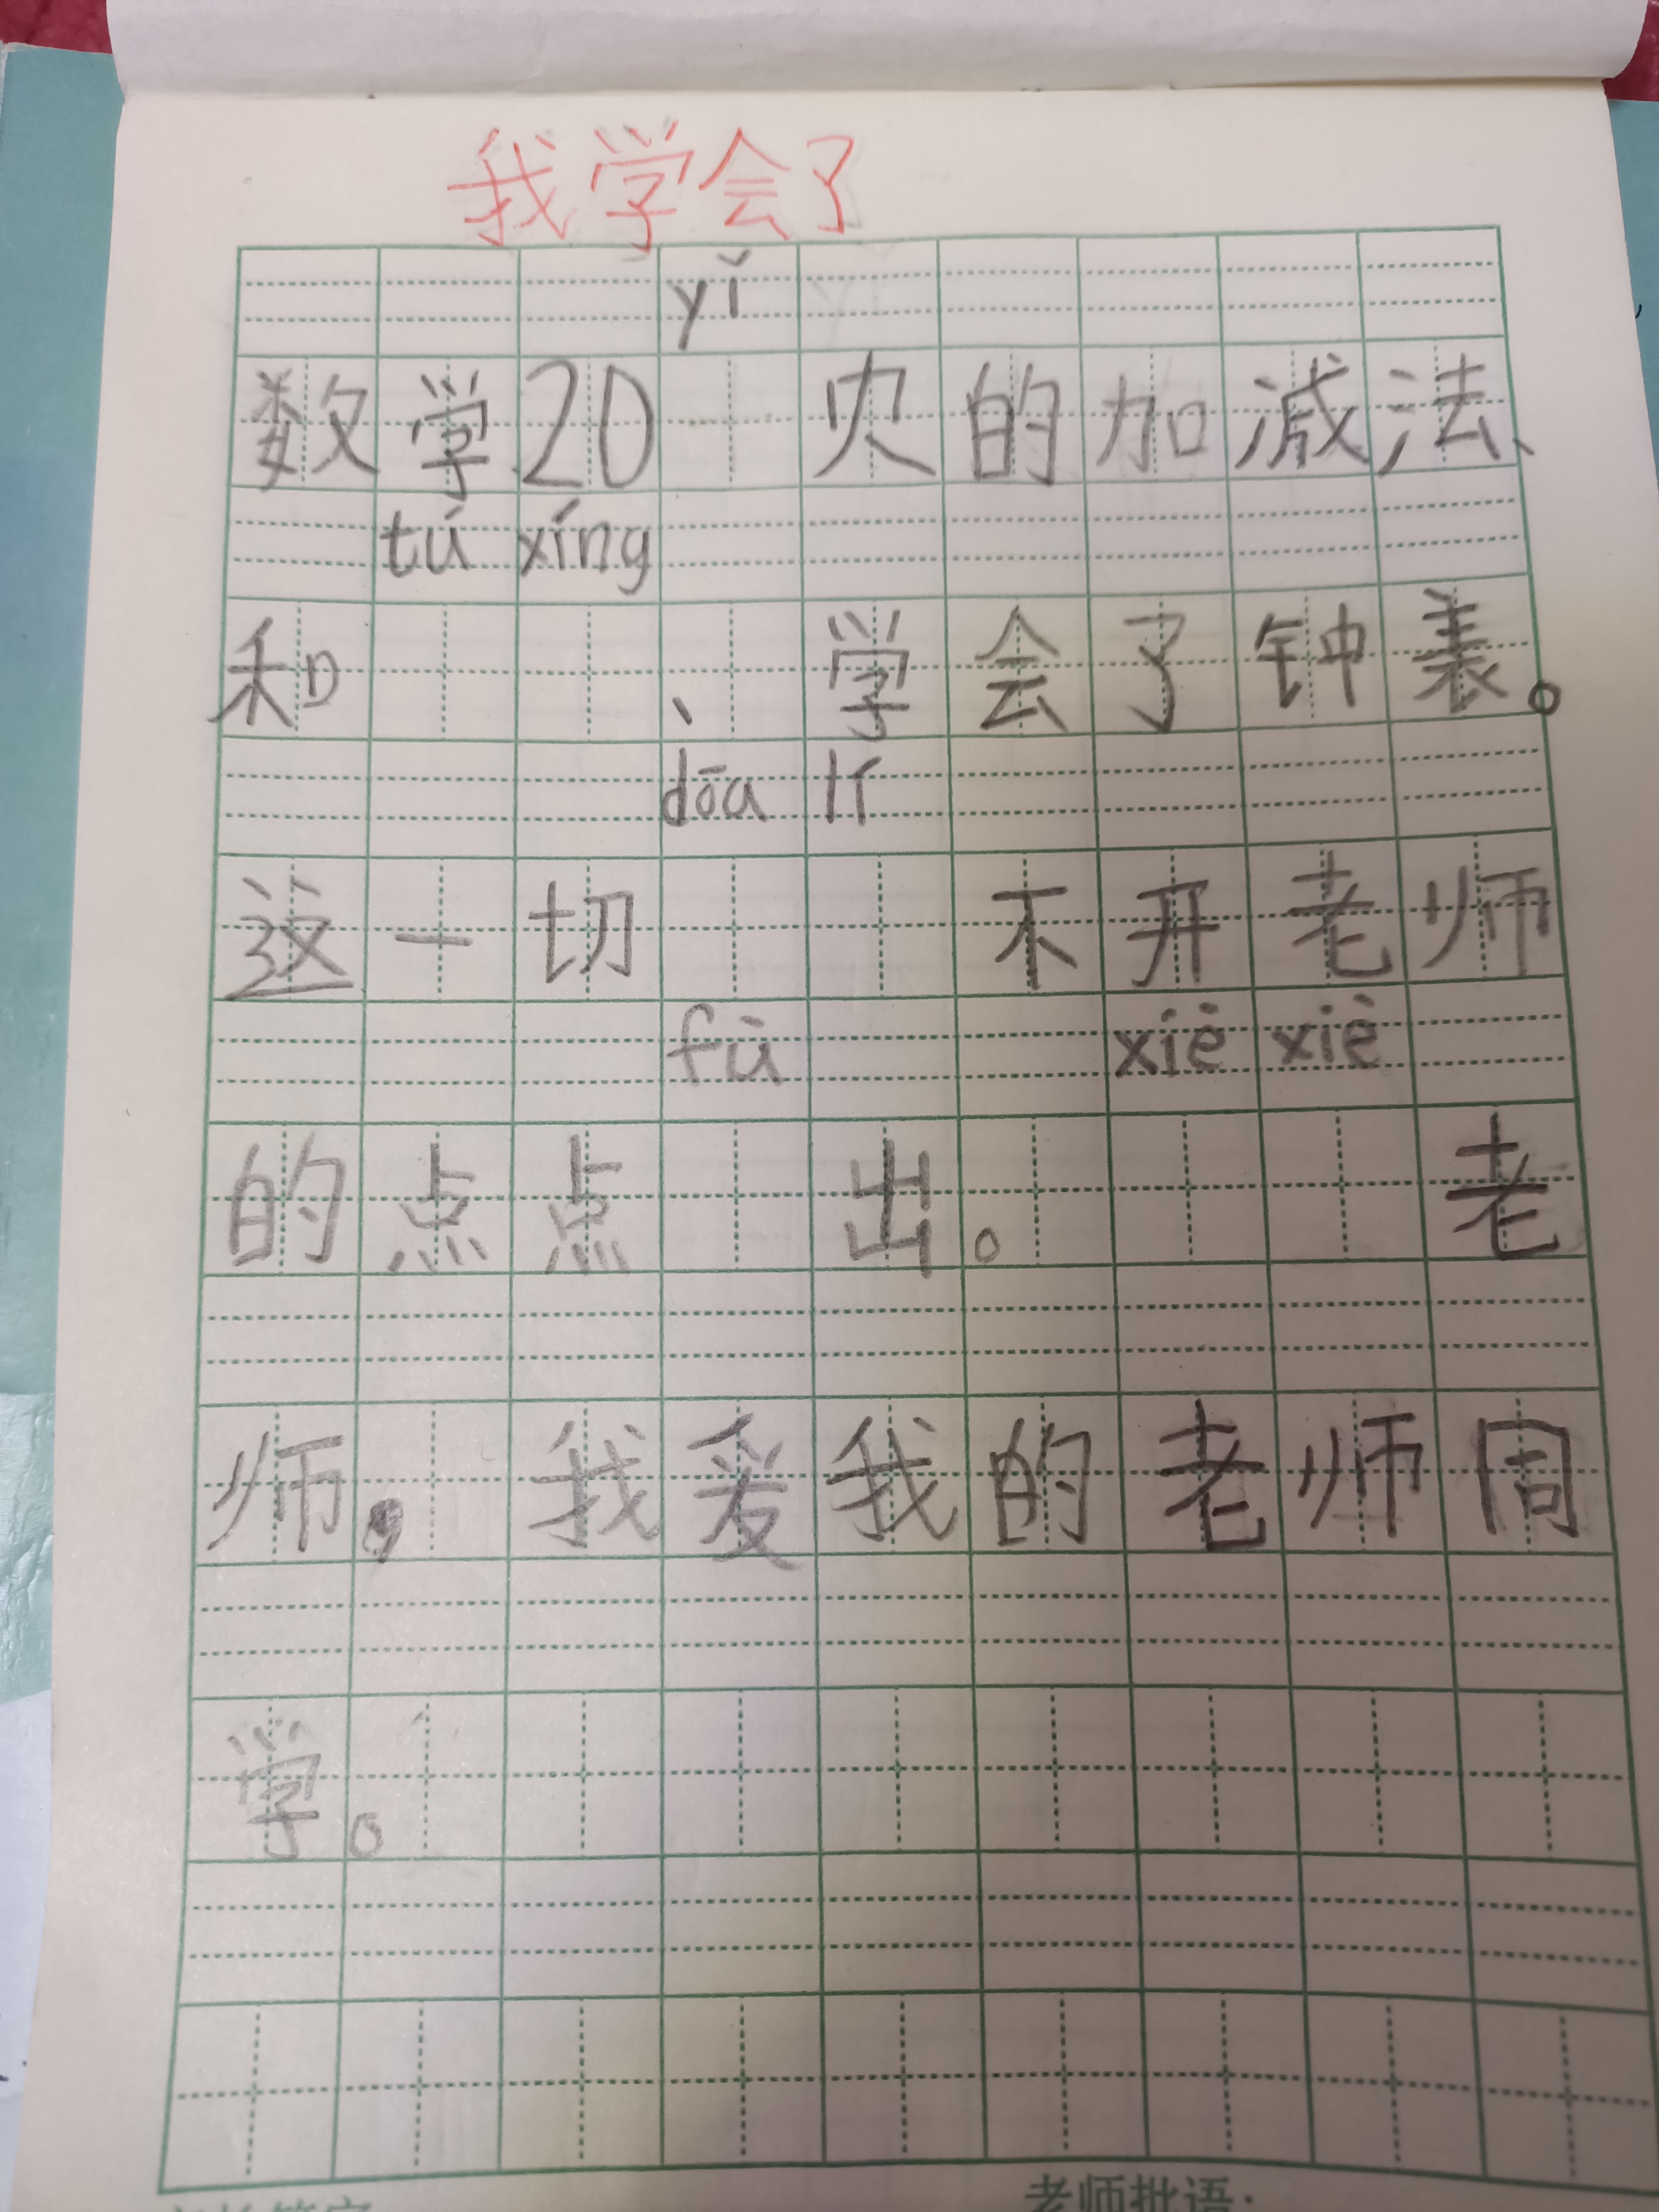 我学会了
yǐ
数学20 内的加减法、
tú xíng
和 、学会了钟表。
dōa lí
这一切 不开老师
fù xiè xiè
的点点 出。 老
师，我爱我的老师周
学。
老师批语: